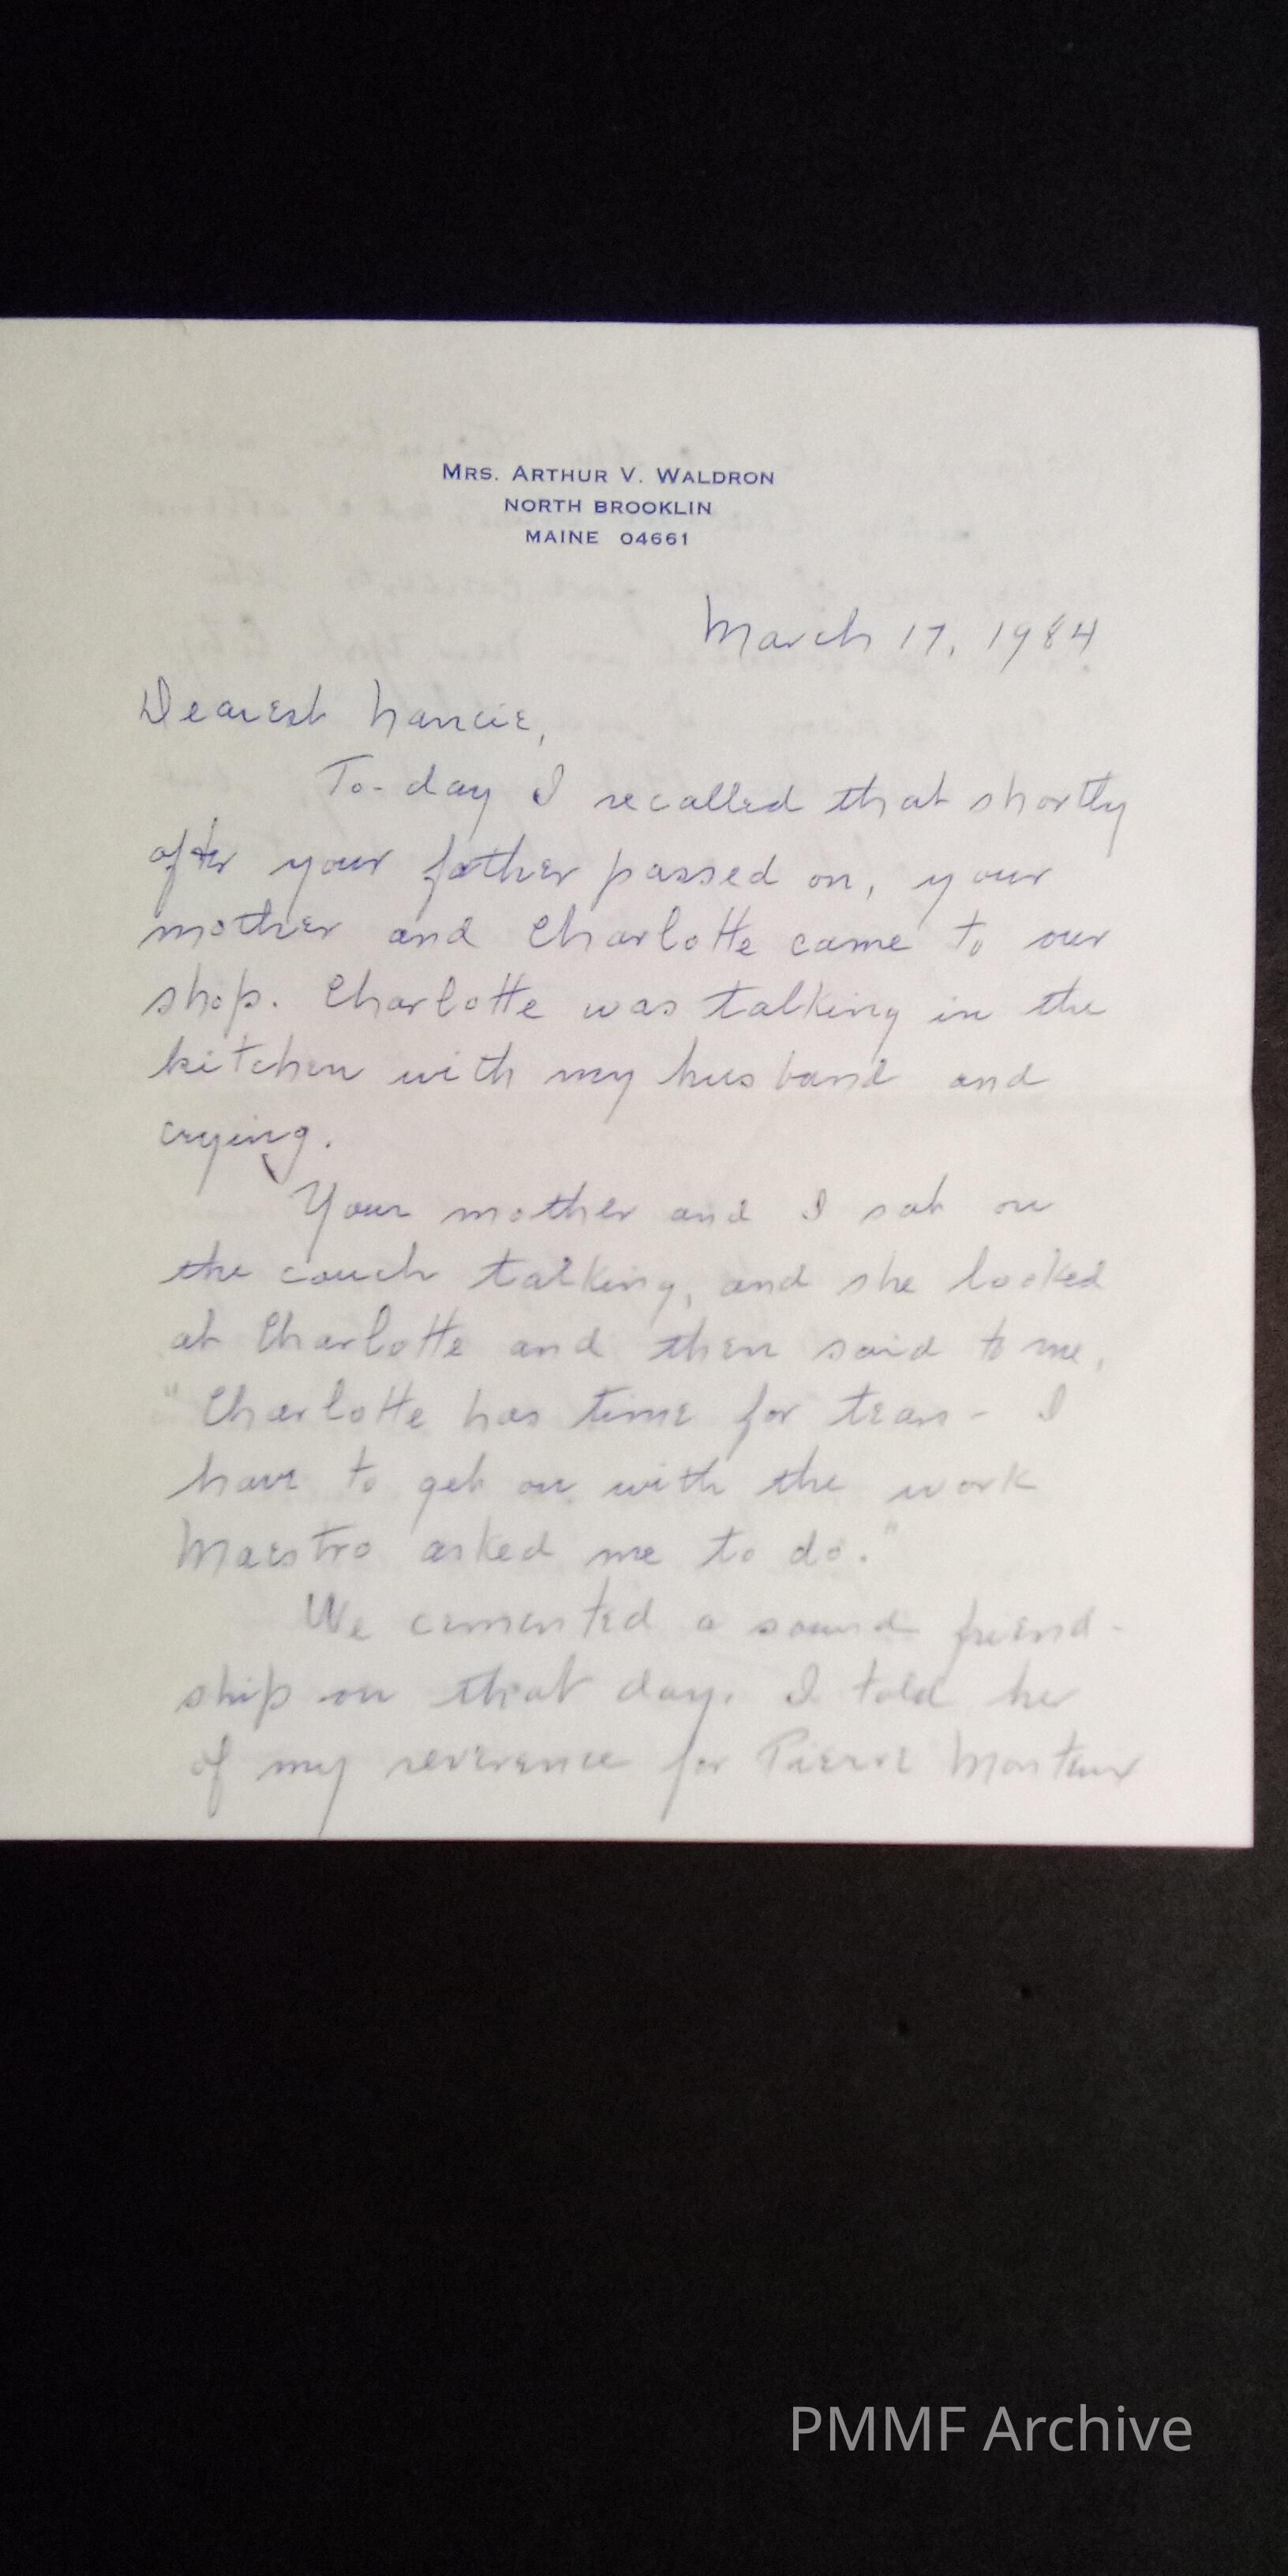 MRS. ARTHUR V. WALDRON
NORTH BROOKLIN
MAINE 04661
March 17, 1984
Dearest Nancie,
To-day I recalled that shortly
after your father passed on, your
mother and Charlotte came to our
shop. Charlotte was talking in the
kitchen with my husband and
crying.
Your mother and I sat on
the couch talking, and she looked
at Charlotte and then said to me,
"Charlotte has time for tears - I
have to get on with the work
Maestro asked me to do."
We cemented a sound friend-
ship on that day. I told her
of my reverence for Pierre Monteux
PMMF Archive